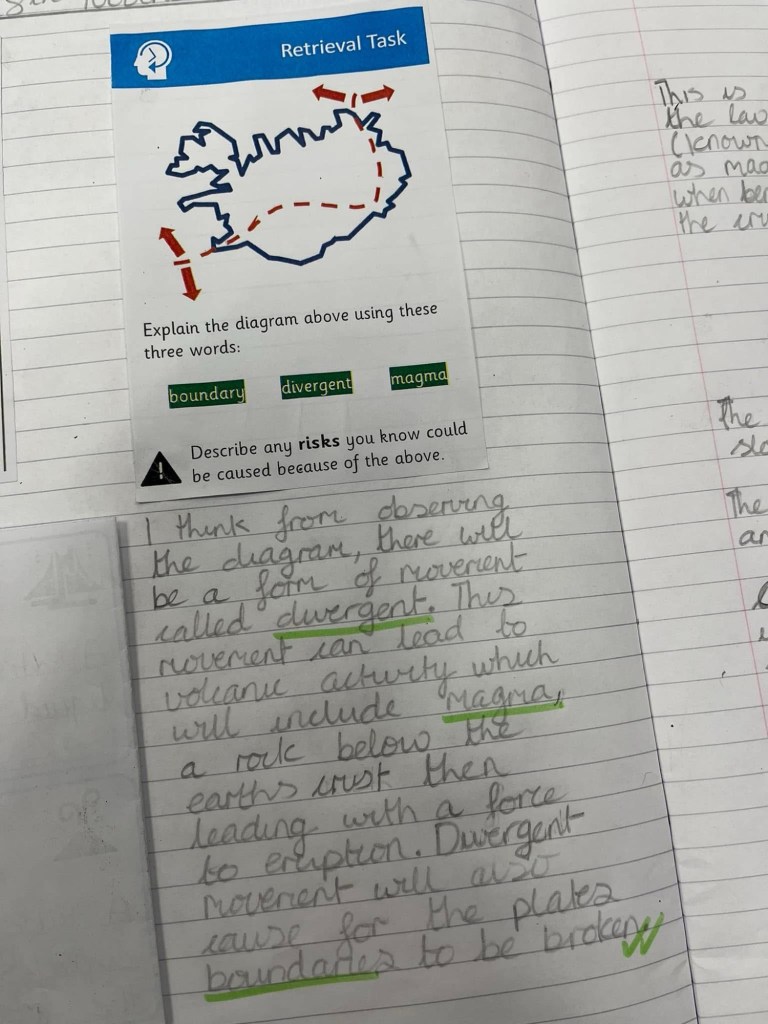 Retrieval Task
Explain the diagram above using these
three words:
boundary divergent magma
Describe any risks you know could
be caused because of the above.
I think from observing
the diagram, there will
be a form of movement
called divergent. This
movement can lead to
volcanic activity which
will include magma,
a rock below the
earths crust then
leading with a force
to eruption. Divergent
movement will also
cause for the plates
boundaries to be broken
This is
the
(known
as
when
the
The
The